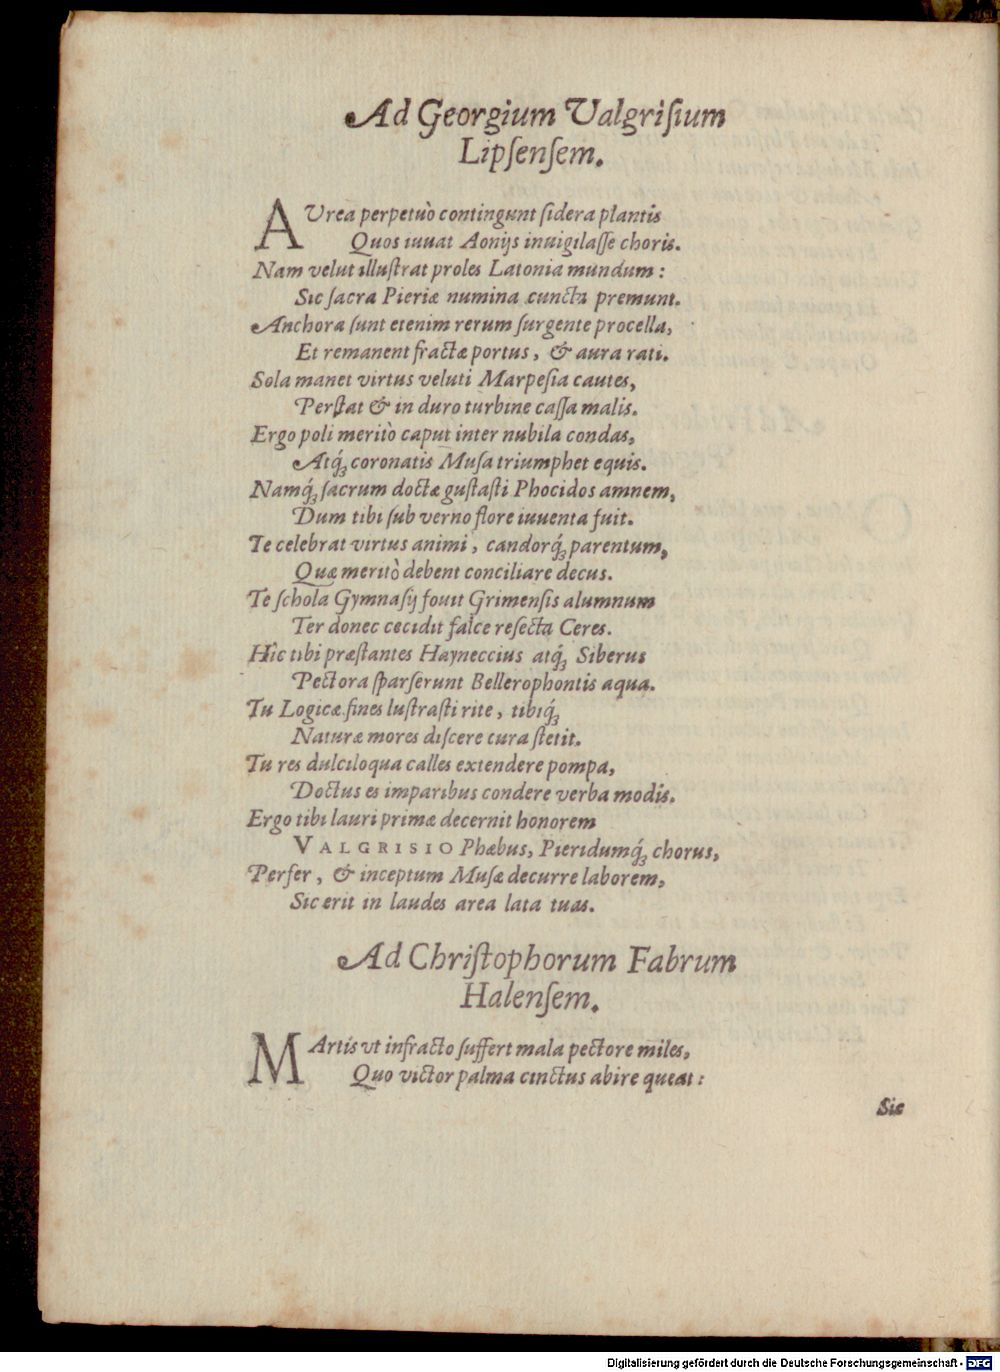 Ad Georgium Valgriſium
Lipſenſem.
AVrea perpetuò contingunt ſidera plantis
Quos iuuat Aonijs inuigilaſſe choris.
Nam velut illuſtrat proles Latonia mundum:
Sic ſacra Pieriæ numina cuncta premunt.
Anchora ſunt etenim rerum ſurgente procella,
Et remanent fractæ portus, & aura rati.
Sola manet virtus veluti Marpeſia cautes,
Perſtat & in duro turbine caſſa malis.
Ergo poli meritò caput inter nubila condas,
Atq́ꝫ coronatis Muſa triumphet equis.
Namq́ꝫ ſacrum doctæ guſtaſti Phocidos amnem,
Dum tibi ſub verno flore iuuenta fuit.
Te celebrat virtus animi, candorq́ꝫ parentum,
Quæ meritò debent conciliare decus.
Te ſchola Gymnaſij fouit Grimenſis alumnum
Ter donec cecidit falce reſecta Ceres.
Hîc tibi præſtantes Hayneccius atq́ꝫ Siberus
Pectora ſparſerunt Bellerophontis aqua.
Tu Logicæ fines luſtraſti rite, tibiq́ꝫ
Naturæ mores diſcere cura ſtetit.
Tu res dulciloqua calles extendere pompa,
Doctus es imparibus condere verba modis.
Ergo tibi lauri primæ decernit honorem
VALGRISIO Phæbus, Pieridumq́ꝫ chorus,
Perfer, & inceptum Muſæ decurre laborem,
Sic erit in laudes area lata tuas.
Ad Chriſtophorum Fabrum
Halenſem.
MArtis vt infracto ſuffert mala pectore miles,
Quo victor palma cinctus abire queat:
Sic
Digitalisierung gefördert durch die Deutsche Forschungsgemeinschaft - DFG